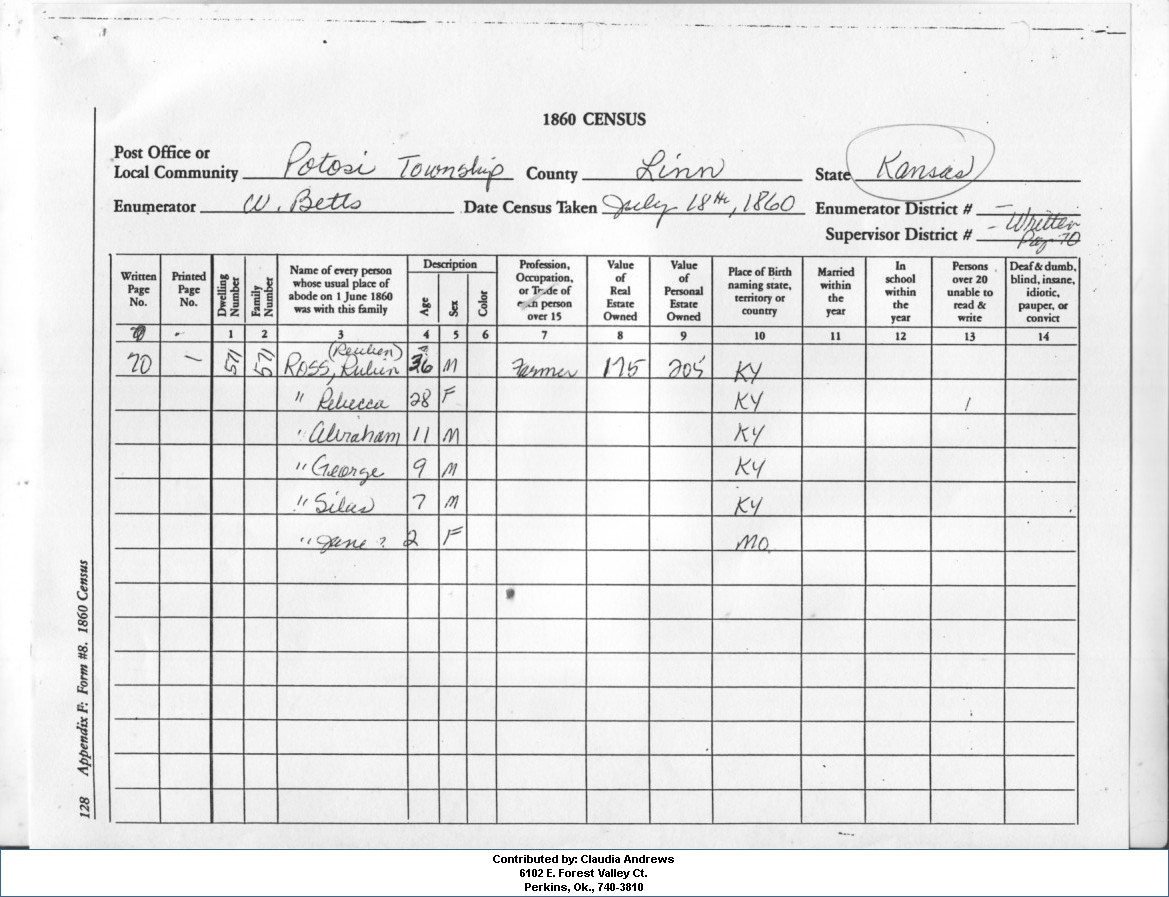 1860 CENSUS
Post Office or
Local Community Potosi Township County Linn State Kansas
Enumerator W. Betts Date Census Taken July 18th, 1860 Enumerator District # -
Supervisor District # - Written Pag 70
Written Page No. Printed Page No. Dwelling Number Family Number Name of every person whose usual place of abode on 1 June 1860 was with this family Description Age Sex Color Profession, Occupation, or Trade of each person over 15 Value of Real Estate Owned Value of Personal Estate Owned Place of Birth naming state, territory or country Married within the year In school within the year Persons over 20 unable to read & write Deaf & dumb, blind, insane, idiotic, pauper, or convict
1 2 3 4 5 6 7 8 9 10 11 12 13 14
(Reuben)
70 — 571 571 ROSS, Rubin 36 M Farmer 175 205 KY
" Rebecca 28 F KY 1
" Abraham 11 M KY
" George 9 M KY
" Silas 7 M KY
" Jane ? 2 F MO.
128 Appendix F: Form #8. 1860 Census
Contributed by: Claudia Andrews
6102 E. Forest Valley Ct.
Perkins, Ok., 740-3810